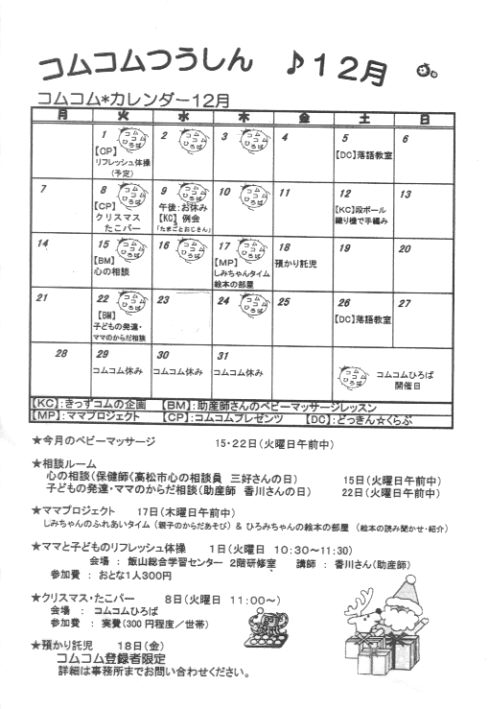 コムコムつうしん ♪12月
コムコム*カレンダー12月
月 火 水 木 金 土 日
1 2 3 4 5 6
【CP】
リフレッシュ体操
(予定)
【DC】落語教室
7 8 9 10 11 12 13
【CP】
クリスマス
たこパー
午後:お休み
【KC】例会
「たまごとおじさん」
【KC】段ボール
織り機で手編み
14 15 16 17 18 19 20
【BM】
心の相談
【MP】
しみちゃんタイム
絵本の部屋
預かり託児
21 22 23 24 25 26 27
【BM】
子どもの発達・
ママのからだ相談
【DC】落語教室
28 29 30 31
コムコム休み コムコム休み コムコム休み
コムコムひろば
開催日
【KC】:きっずコムの企画 【BM】:助産師さんのベビーマッサージレッスン
【MP】:ママプロジェクト 【CP】:コムコムプレゼンツ 【DC】:どっきん☆くらぶ
★今月のベビーマッサージ 15・22日(火曜日午前中)
★相談ルーム
心の相談(保健師(高松市心の相談員 三好さんの日) 15日(火曜日午前中)
子どもの発達・ママのからだ相談(助産師 香川さんの日) 22日(火曜日午前中)
★ママプロジェクト 17日(木曜日午前中)
しみちゃんのふれあいタイム (親子のからだあそび) & ひろみちゃんの絵本の部屋 (絵本の読み聞かせ・紹介)
★ママと子どものリフレッシュ体操 1日(火曜日 10:30～11:30)
会場 : 飯山総合学習センター 2階研修室 講師 : 香川さん(助産師)
参加費 : おとな1人300円
★クリスマス・たこパー 8日(火曜日 11:00～)
会場 : コムコムひろば
参加費 : 実費(300円程度/世帯)
★預かり託児 18日(金)
コムコム登録者限定
詳細は事務所までお問い合わせください。